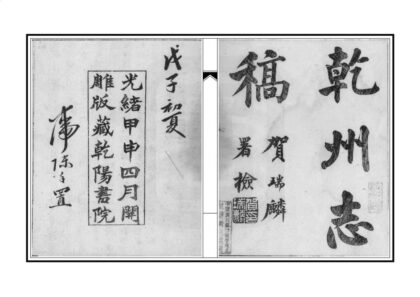 乾州志
稿
賀瑞麟
署檢
戊子初夏
光緒甲申四月開
雕版藏乾陽書院